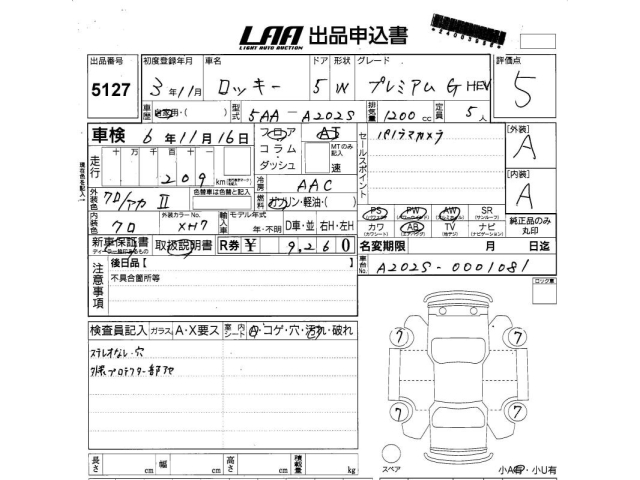 LAA 出品申込書
LIGHT AUTO AUCTION
出品番号 初度登録年月 車名 ドア 形状 グレード 評価点
5127 3年11月 ロッキー 5 W プレミアム G HEV 5
車歴 自家用・( ) 型式 5AA-A202S 排気量 1200cc 定員 5人
車検 6年11月16日 フロア AT セールスポイント パノラマカメラ [外装] A
コラム・ MTのみ記入
ダッシュ 速
走行 十万千百十 209 km
現在色を記入
冷房 AAC [内装] A
外装色 クロ/アカ II 色替車は色替と記入 燃料 ガソリン・軽油・( )
PS PW AW SR
(パワステ) (パワーウインド) (アルミホイル) (サンルーフ)
純正品のみ丸印
内装色 クロ 外装カラーNo. XH7 輸入車 モデル年式 年・不明 D車・並 右H・左H
カワ AB TV ナビ
(カワシート) (エアバッグ) (地デジ) (ナビゲーション)
新車保証書 取扱説明書 R券 ¥ 9,260 名変期限 月 日迄
ディーラー発行されるもの
注意事項 後日品 [ 車台No. A202S-0001081
不具合箇所等 ロック東
検査員記入 ガラス A・X要ス 室内シート コゲ・穴・汚れ・破れ
ステレオなし・穴
7 7
7 7
長さ cm 幅 cm 高さ cm 積載量 kg
スペア 小A有・小U有